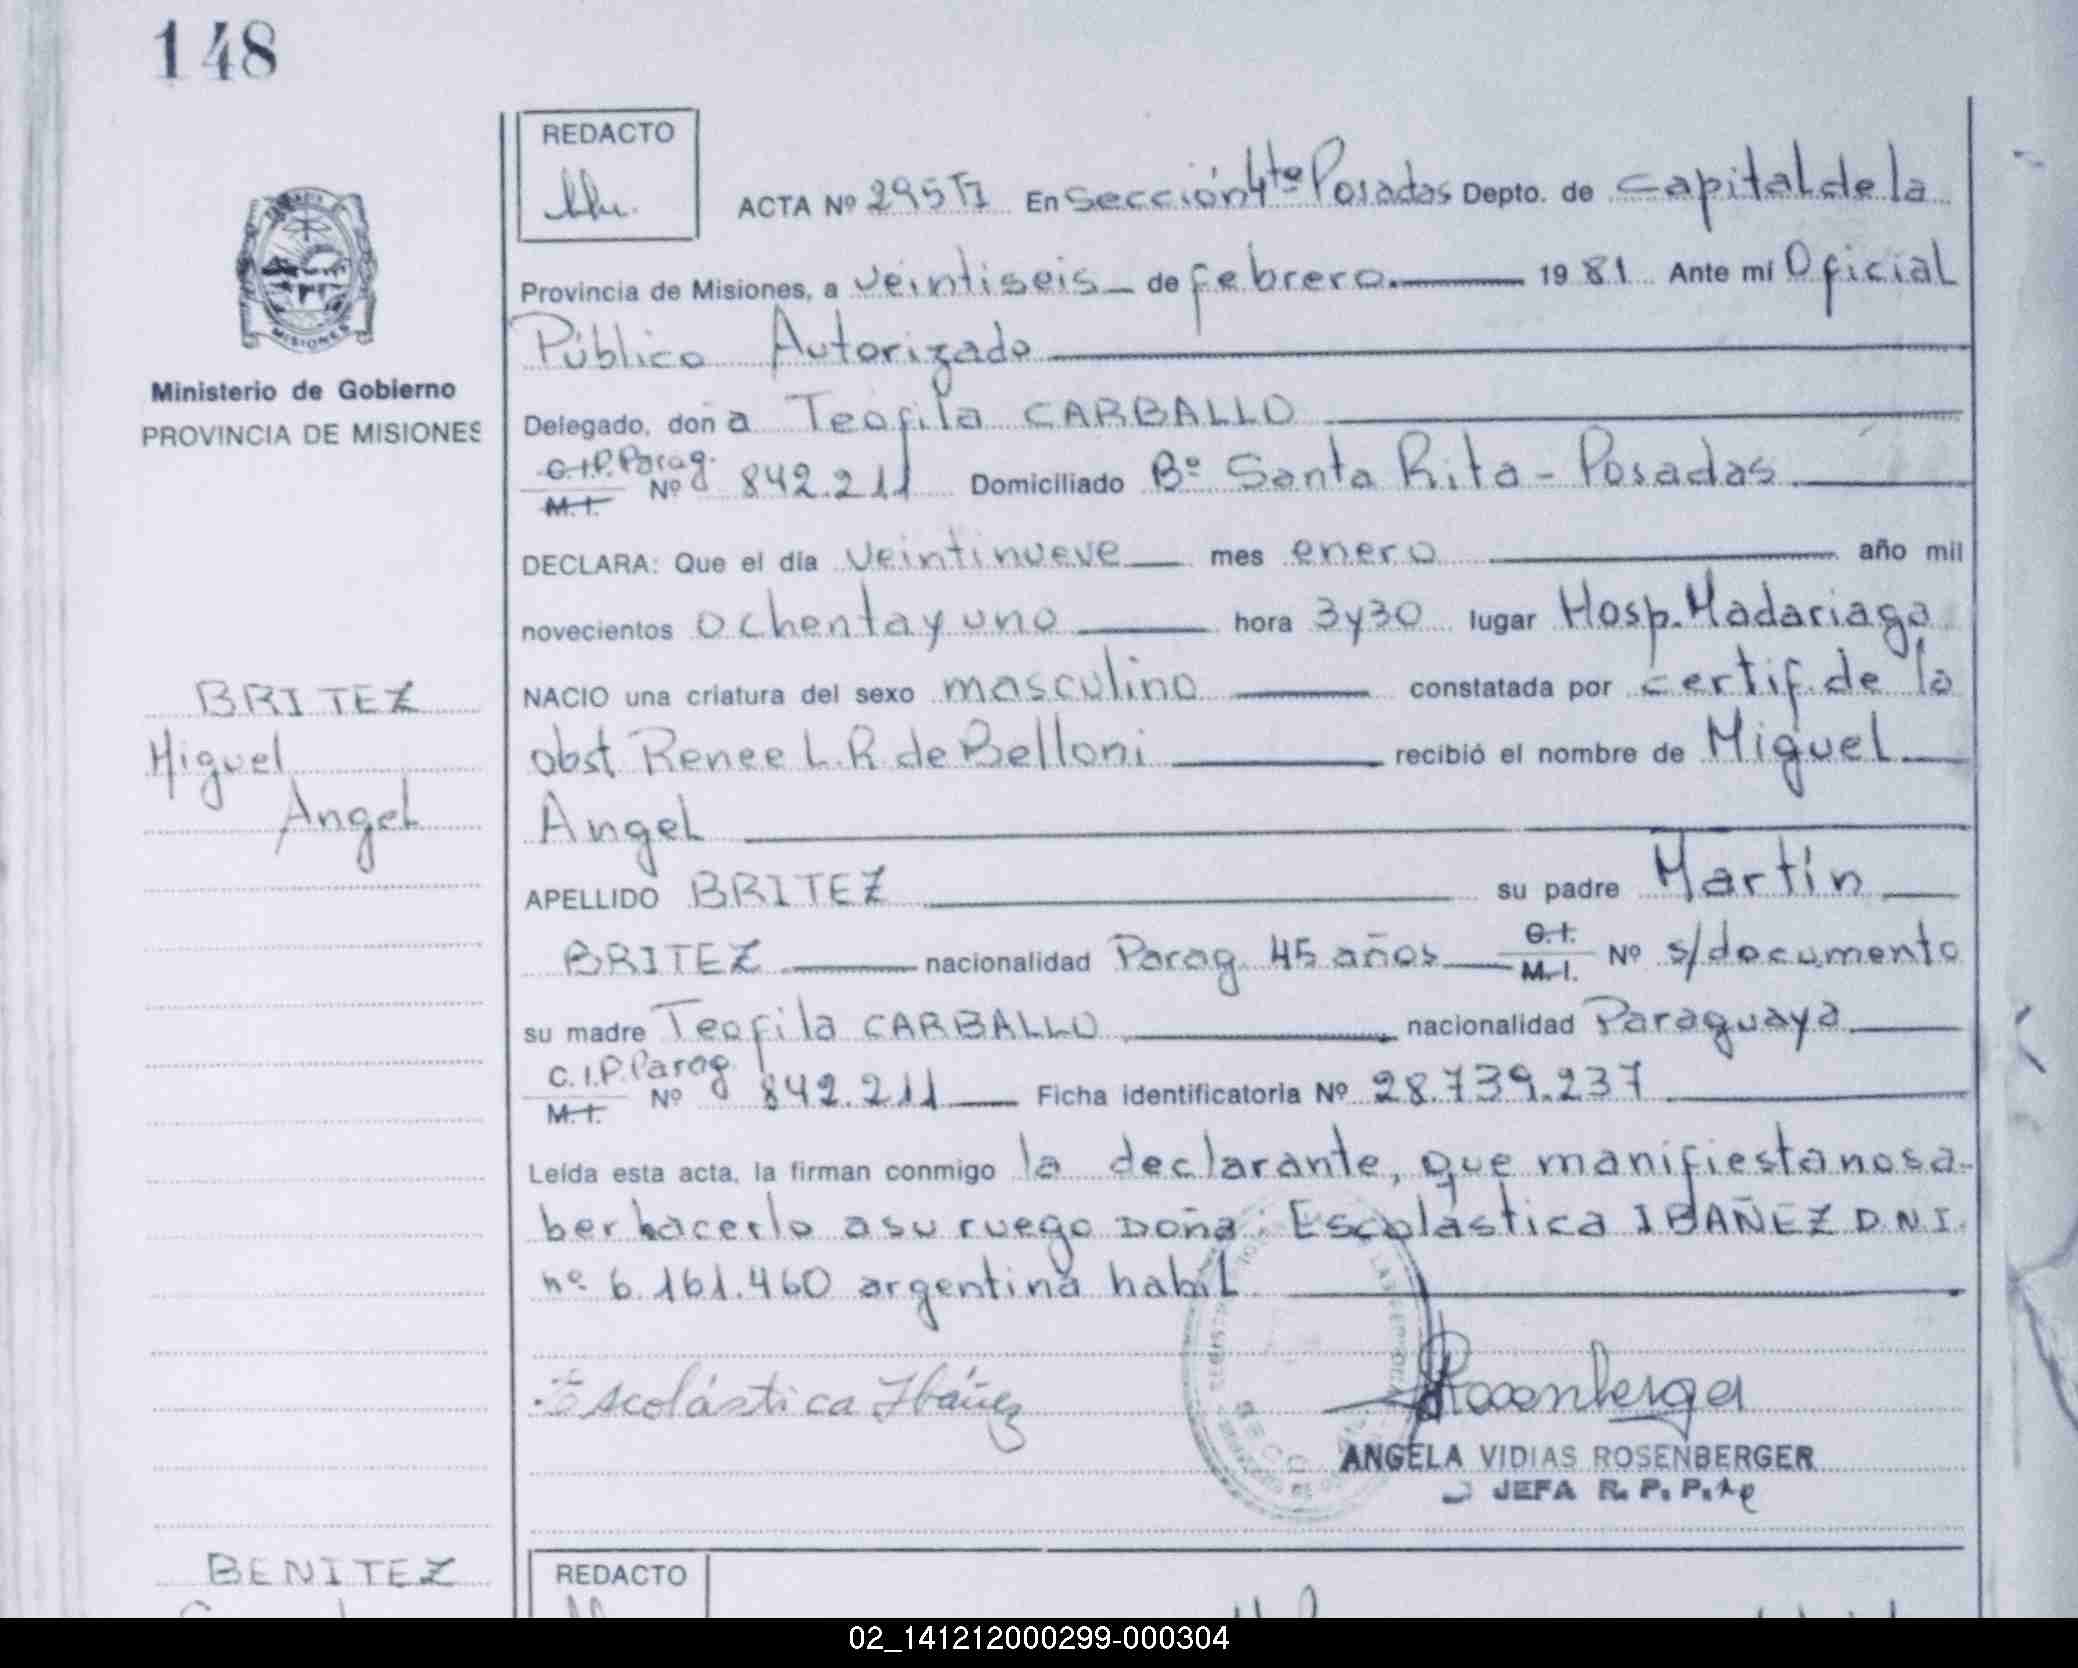 148
REDACTO
ACTA Nº 295 TI En Sección 4ta Posadas Depto. de Capital de la
Provincia de Misiones, a veintiseis de febrero. 19 81 Ante mí Oficial
Público Autorizado
Ministerio de Gobierno
PROVINCIA DE MISIONES
Delegado, doña Teofila CARBALLO
C.I.P. Parag. M.I. Nº 842.211 Domiciliado Bº Santa Rita - Posadas
DECLARA: Que el día veintinueve mes enero año mil
novecientos ochenta y uno hora 3 y 30 lugar Hosp. Madariaga
BRITEZ
Miguel
Angel
NACIO una criatura del sexo masculino constatada por certif. de la
obst Renee L. R de Belloni recibió el nombre de Miguel
Angel
APELLIDO BRITEZ su padre Martín
BRITEZ nacionalidad Parag. 45 años C.I. M.I. Nº s/documento
su madre Teofila CARBALLO nacionalidad Paraguaya
C.I.P. Parag. M.I. Nº 842.211 Ficha identificatoria Nº 28.739.237
Leída esta acta, la firman conmigo la declarante, que manifiesta no sa-
ber hacerlo a su ruego Doña Escolástica IBAÑEZ D.N.I.
nº 6.161.460 argentina habil
Escolástica Ibáñez
Rosenberger
ANGELA VIDIAS ROSENBERGER
JEFA R. P. P.
BENITEZ
REDACTO
02_141212000299-000304